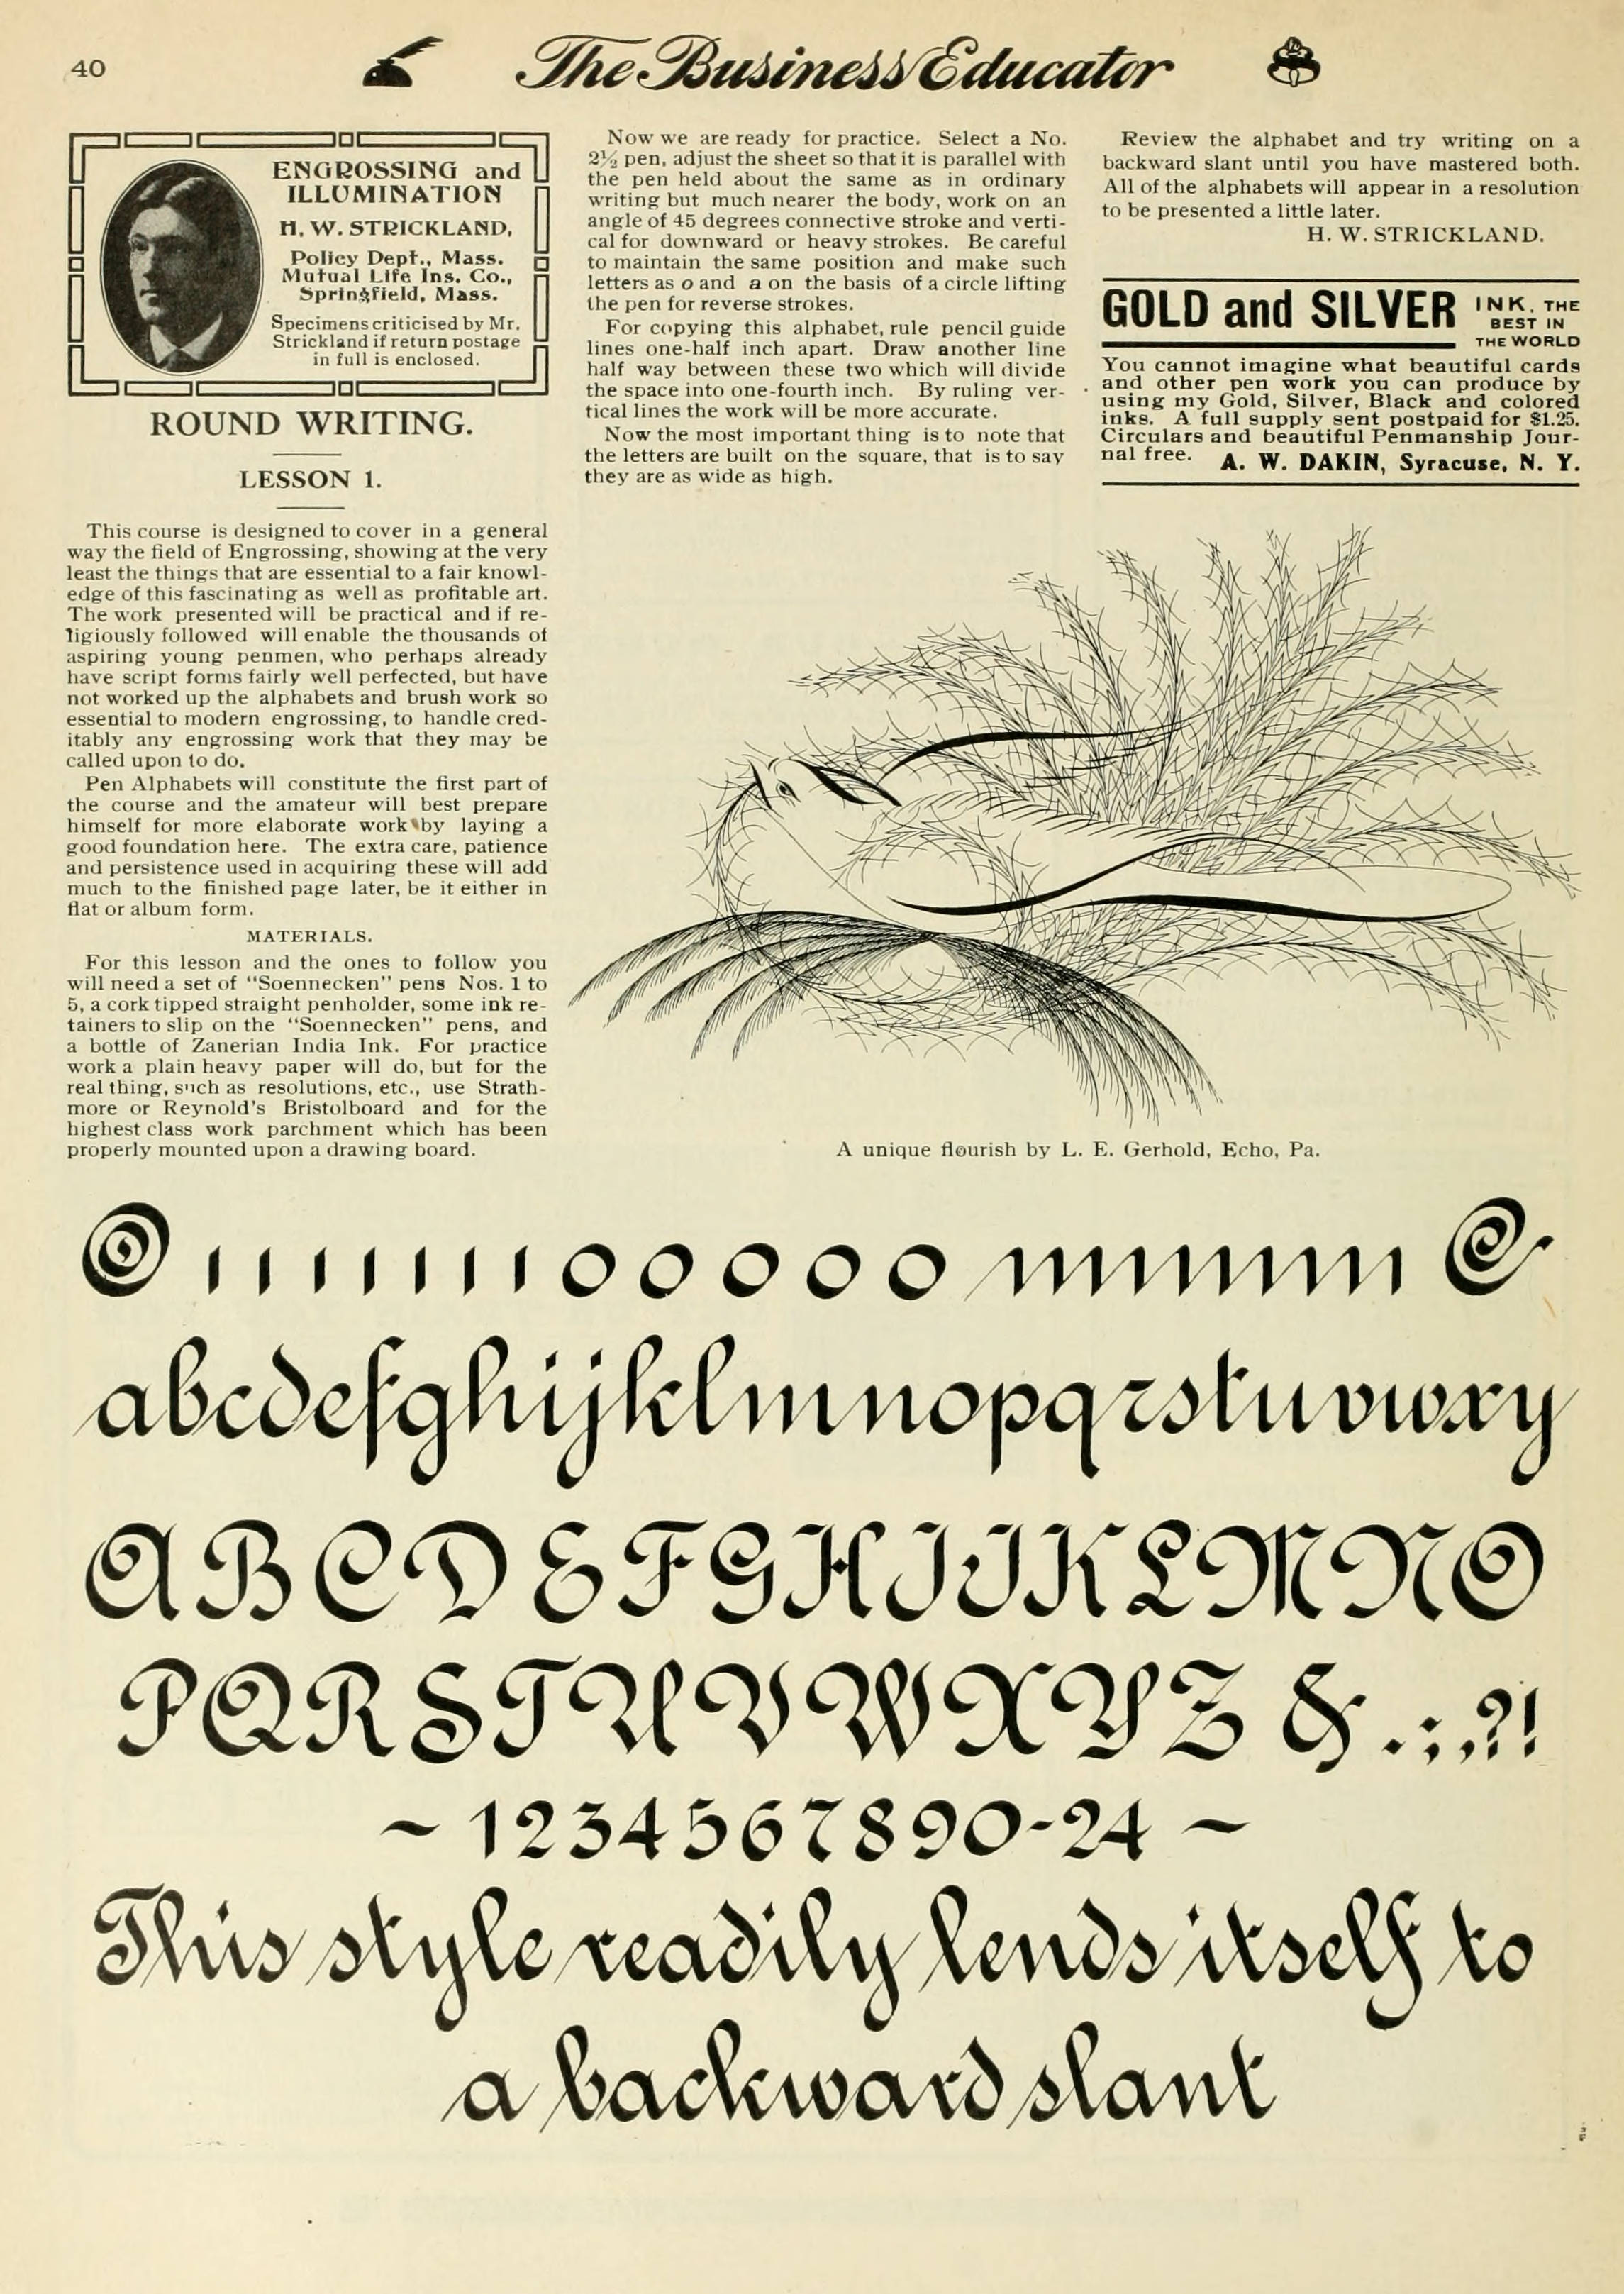 40
The Business Educator
ENGROSSING and
ILLUMINATION
H. W. STRICKLAND,
Policy Dept., Mass.
Mutual Life Ins. Co.,
Springfield, Mass.
Specimens criticised by Mr.
Strickland if return postage
in full is enclosed.
ROUND WRITING.
LESSON 1.
This course is designed to cover in a general
way the field of Engrossing, showing at the very
least the things that are essential to a fair knowl-
edge of this fascinating as well as profitable art.
The work presented will be practical and if re-
ligiously followed will enable the thousands of
aspiring young penmen, who perhaps already
have script forms fairly well perfected, but have
not worked up the alphabets and brush work so
essential to modern engrossing, to handle cred-
itably any engrossing work that they may be
called upon to do.
Pen Alphabets will constitute the first part of
the course and the amateur will best prepare
himself for more elaborate work by laying a
good foundation here. The extra care, patience
and persistence used in acquiring these will add
much to the finished page later, be it either in
flat or album form.
MATERIALS.
For this lesson and the ones to follow you
will need a set of "Soennecken" pens Nos. 1 to
5, a cork tipped straight penholder, some ink re-
tainers to slip on the "Soennecken" pens, and
a bottle of Zanerian India Ink. For practice
work a plain heavy paper will do, but for the
real thing, such as resolutions, etc., use Strath-
more or Reynold's Bristolboard and for the
highest class work parchment which has been
properly mounted upon a drawing board.
Now we are ready for practice. Select a No.
2½ pen, adjust the sheet so that it is parallel with
the pen held about the same as in ordinary
writing but much nearer the body, work on an
angle of 45 degrees connective stroke and verti-
cal for downward or heavy strokes. Be careful
to maintain the same position and make such
letters as o and a on the basis of a circle lifting
the pen for reverse strokes.
For copying this alphabet, rule pencil guide
lines one-half inch apart. Draw another line
half way between these two which will divide
the space into one-fourth inch. By ruling ver-
tical lines the work will be more accurate.
Now the most important thing is to note that
the letters are built on the square, that is to say
they are as wide as high.
Review the alphabet and try writing on a
backward slant until you have mastered both.
All of the alphabets will appear in a resolution
to be presented a little later.
H. W. STRICKLAND.
GOLD and SILVER INK. THE
BEST IN
THE WORLD
You cannot imagine what beautiful cards
and other pen work you can produce by
using my Gold, Silver, Black and colored
inks. A full supply sent postpaid for $1.25.
Circulars and beautiful Penmanship Jour-
nal free. A. W. DAKIN, Syracuse, N. Y.
A unique flourish by L. E. Gerhold, Echo, Pa.
O ı ı ı ı ı ı ı o o o o o mmmm C
abcdefghijklmnopqrstuvwxy
ABCDEFGHIJKLMNO
PQRSTUVWXYZ & . ; , ? !
~ 1234567890-24 ~
This style readily lends itself to
a backward slant